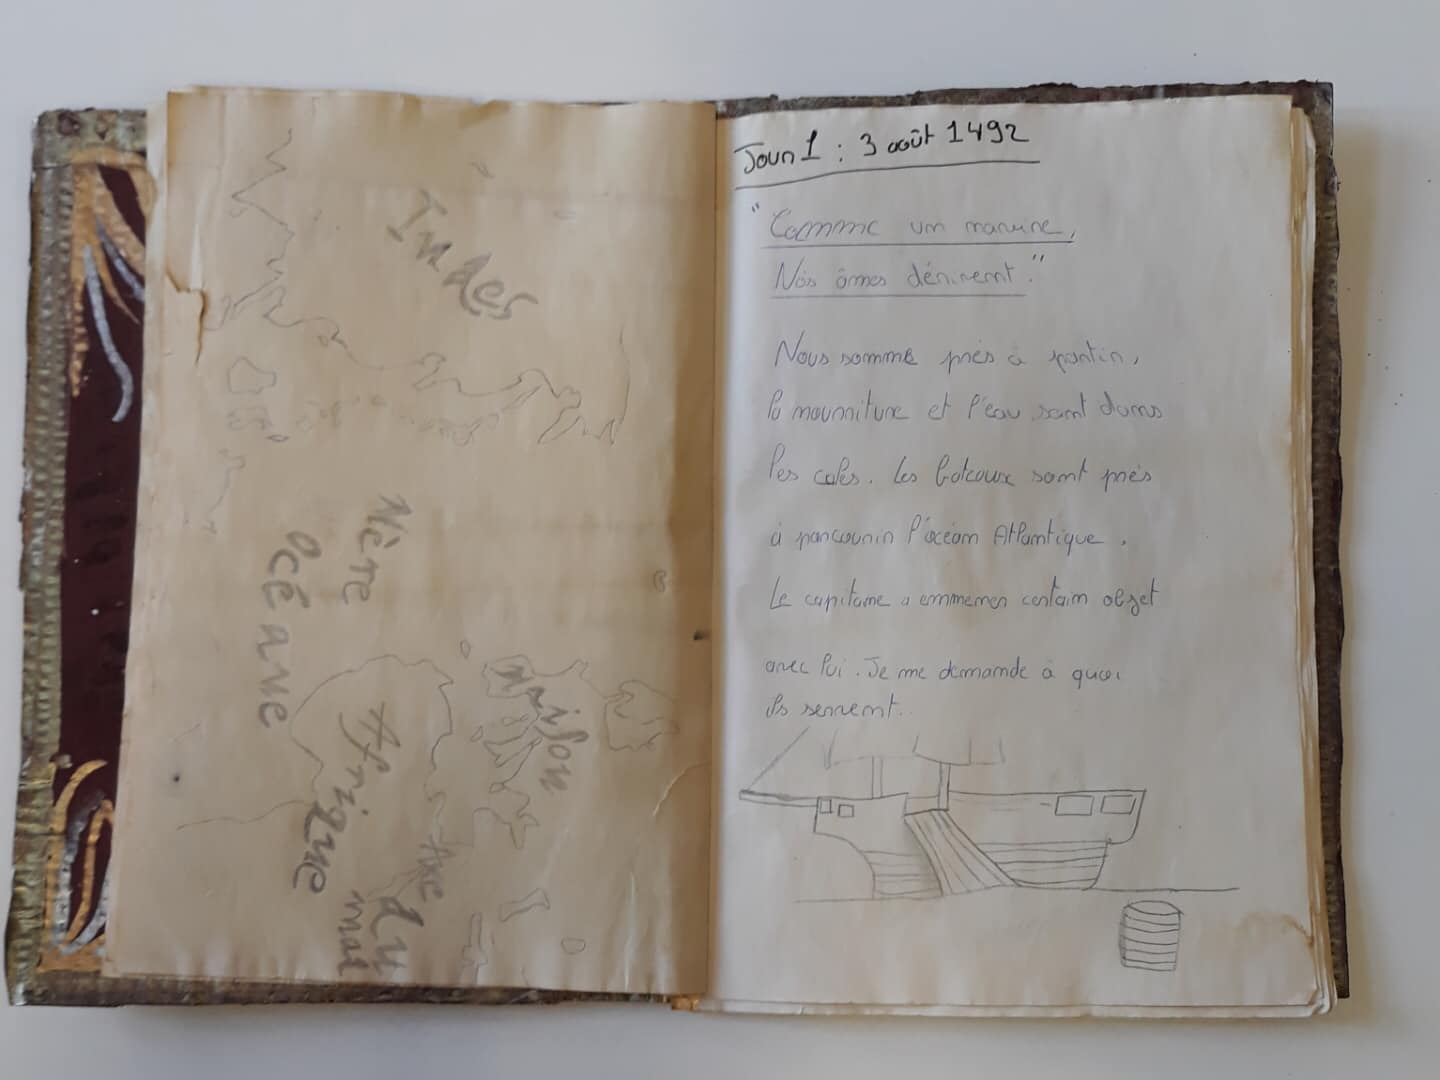 Indes
Mère
Océane
maison
Afrique
Axe
du
mal
Jour 1 : 3 août 1492
"Comme un navire,
Nos âmes dérivent."
Nous somme près à partir,
la nourriture et l'eau sont dans
les cales. Les bateaux sont près
à parcourir l'océan Atlantique.
Le capitaine a emmener certain objet
avec lui. Je me demande à quoi
ils servent..